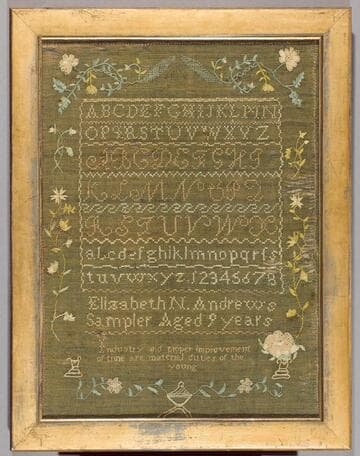 ABCDEFGHIJKLMN
OPQRSTUVWXYZ
ABCDEFGHI
KLMNOPQ
RSTUVWX
abcdefghiklmnopqrſs
tuvwxyz.12345678
Elizabeth N. Andrews
Sampler Aged 9 years
Industry and proper improvement
of time are material duties of the
young